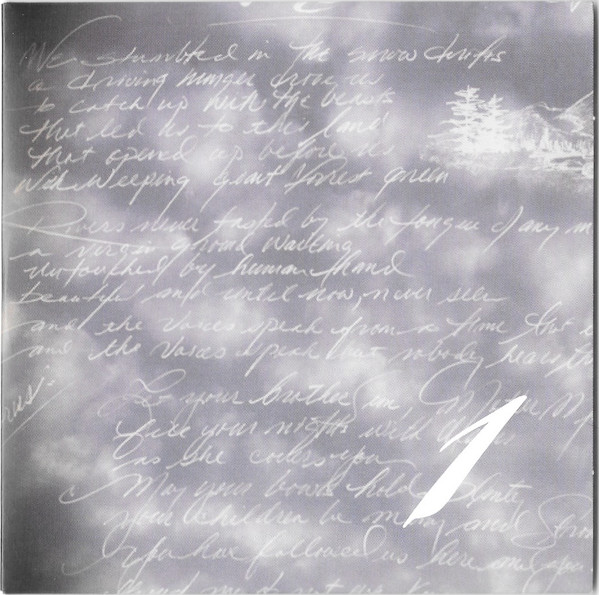 We stumbled in the snow drifts
a driving hunger drove us
to catch up with the beasts
that led us to this land
that opened up before us
with weeping giant forest green
Rivers never tasted by the tongue of any m
a virgin ground waiting
untouched by human hand
beautiful and until now, never seen
and the voices speak from a time that
and the voices speak but nobody hears th
rus:
Let your brother Sun,
fill your nights with
as she covers you
May your bows hold
your children be many and Stron
You have followed us here